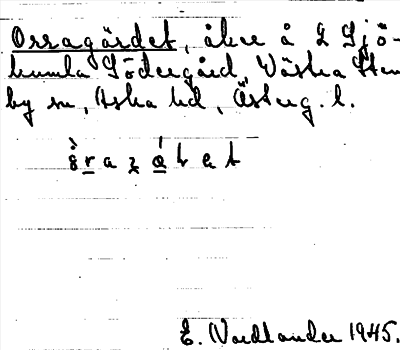 Orragärdet, åker å L Sjö-
kumla Södergård, Västra Sten
by sn, Aska hd, Österg. l.
E. Nordlander 1945.